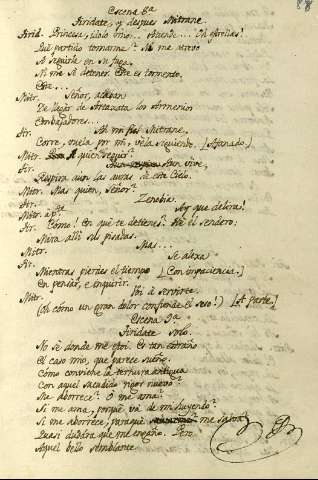 Escena 8ª
Tiridate, y despues Mitrane
Tirid. Princesa, idolo mio.. Atende... Oh estrellas!
Qué partido tomarme? Ni me atrevo
A seguirle en su fuga,
Ni me sé detener. Este es tormento,
Este...
Mitr. Señor, acaban
De llegar de Artaxata los Armenios
Embajadores...
Tir. Ah mi fiel Mitrane,
Corre, vuela por mi, vela siguiendo. [Afanado.]
Mitr. A quien seguir?
Tir. Aun vive,
Respira aun las auras de este Cielo.
Mitr. Mas quien, Señor?
Tir. Zenobia.
Mitr. apte Ay que delira!
Tir. Como! En qué te detienes? Ve el sendero:
Mira alli sus pisadas.
Mitr. Mas...
Tir. Se alexa
Mientras pierdes el tiempo [Con impaciencia.]
En pensar, e inquirir.
Mitr. Voi á servirte.
(Oh cómo un gran dolor confunde el seso!) [A parte.]
Escena 9ª
Tiridate solo.
No sé donde me estoi. Es tan estraño
El caso mio, que parece sueño.
Cómo conviene la ternura antigua
Con aquel sacudido rigor nuevo?
Me aborrece? O me ama?
Si me ama, porqué vá de mi huyendo?
Si me aborrece, paraqué me salva?
Quasi dudára que me engaño. Pero
Aquel bello semblante